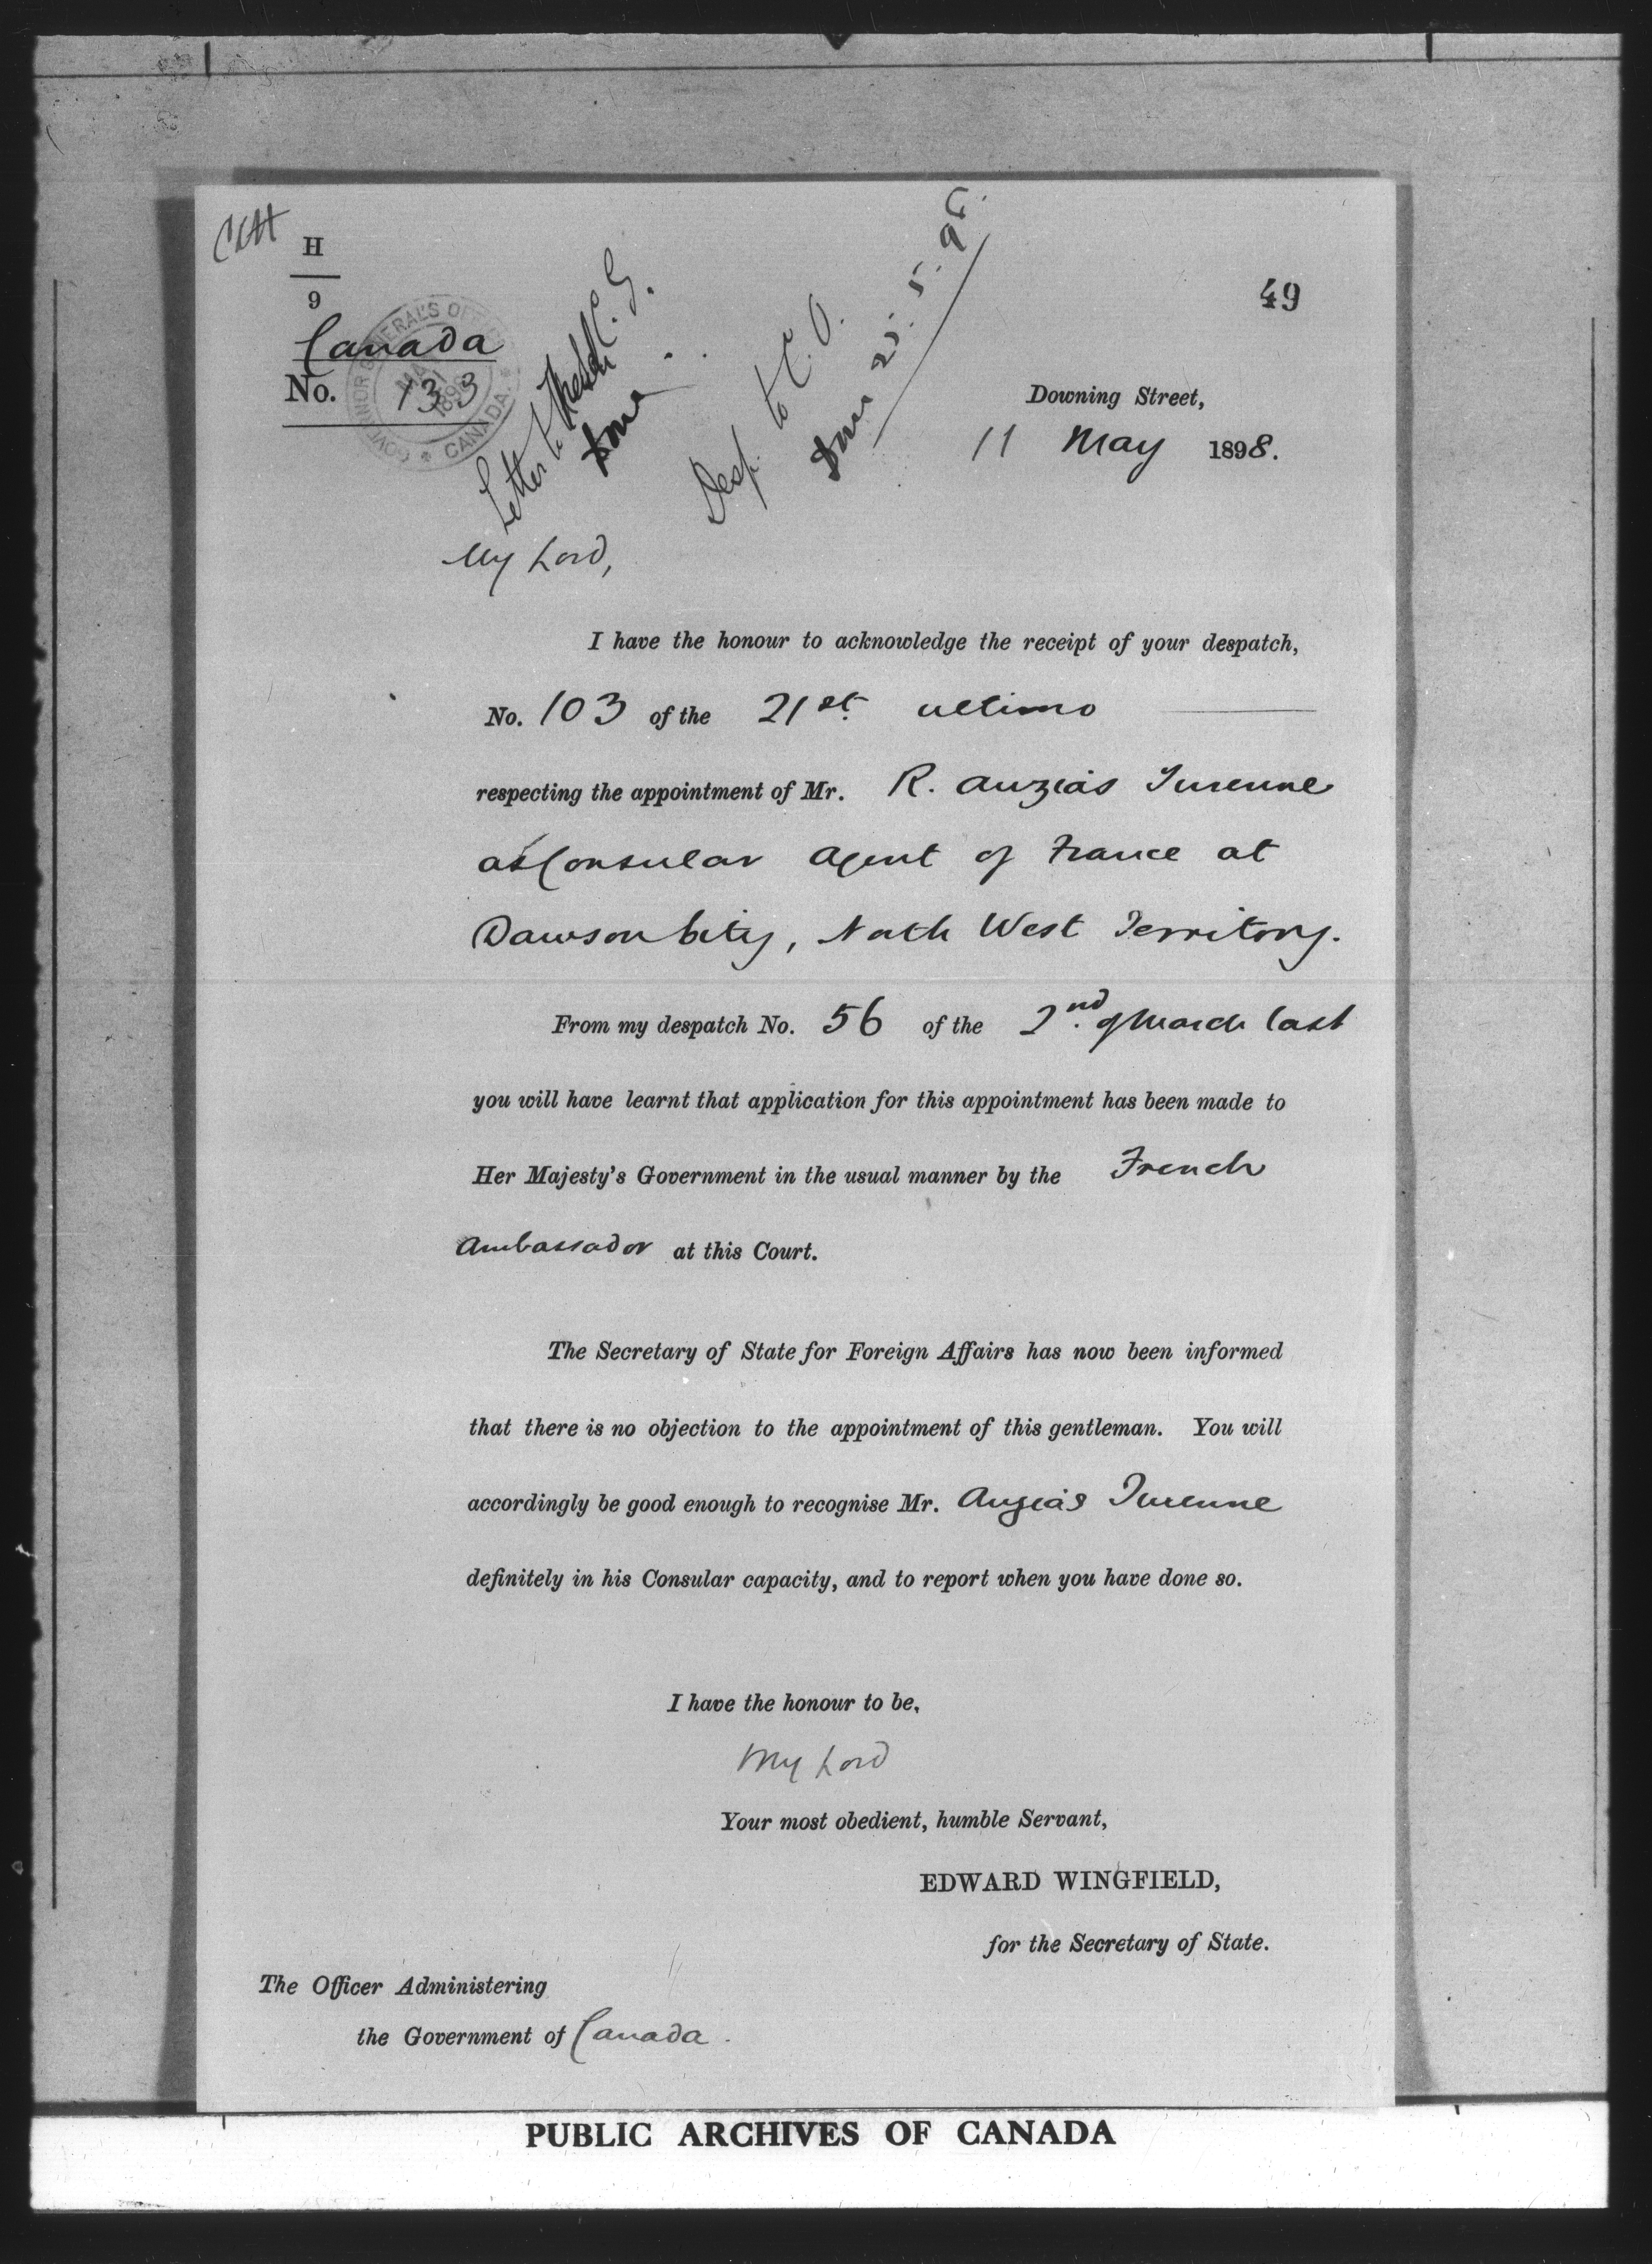 H
9
49
Canada
No. 133
GOVERNOR GENERAL'S OFFICE
CANADA
Letter to
done
Desp. to C. O.
done 21. 5. 98.
Downing Street,
11 May 1898.
My Lord,
I have the honour to acknowledge the receipt of your despatch,
No. 103 of the 21st ultimo
respecting the appointment of Mr. R. Auzias Turenne
as Consular Agent of France at
Dawson City, North West Territory.
From my despatch No. 56 of the 2nd of March last
you will have learnt that application for this appointment has been made to
Her Majesty's Government in the usual manner by the French
Ambassador at this Court.
The Secretary of State for Foreign Affairs has now been informed
that there is no objection to the appointment of this gentleman. You will
accordingly be good enough to recognise Mr. Auzias Turenne
definitely in his Consular capacity, and to report when you have done so.
I have the honour to be,
My Lord
Your most obedient, humble Servant,
EDWARD WINGFIELD,
for the Secretary of State.
The Officer Administering
the Government of Canada.
PUBLIC ARCHIVES OF CANADA